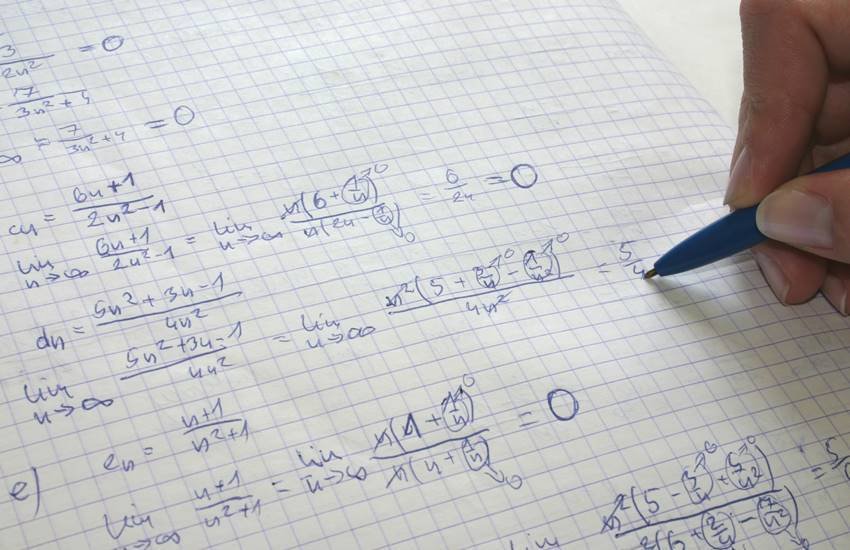 3/2n² = 0
7/3n²+4
∞ = 7/3n²+4 = 0
cn = 6n+1/2n²-1
lim n→∞ 6n+1/2n²-1 = lim n→∞ n(6+1/n)→0/n(2n-1/n)→0 = 6/2n = 0
dn = 5n²+3n-1/4n²
lim n→∞ 5n²+3n-1/4n² = lim n→∞ n²(5+3/n→0-1/n²→0)/4n² = 5/4
en = n+1/n²+1
e) lim n→∞ n+1/n²+1 = lim n→∞ n(1+1/n)→0/n(n+1/n)→0 = 0
lim n²(5-3/n→0+5/n²→0) = 5/